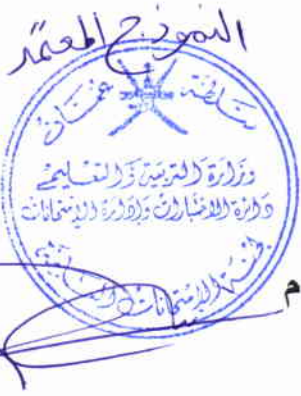 النموذج المعتمد
سلطنة عمان
وزارة التربية والتعليم
دائرة الاختبارات وإدارة الامتحانات
م